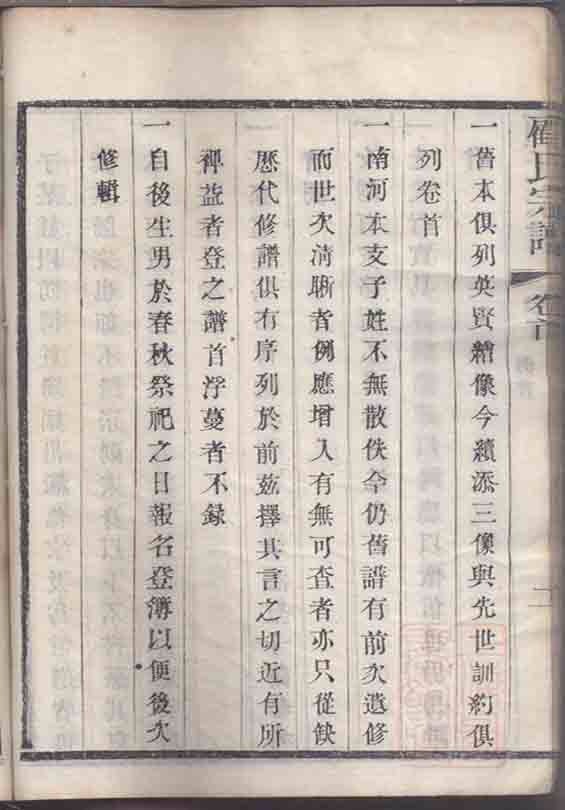 崔氏宗譜
卷首
一舊本俱列英賢繪像今續添三像與先世訓約俱
列卷首
一南河本支子姓不無散佚今仍舊譜有前次遺修
而世次清晰者例應增入有無可查者亦只從缺
一歷代修譜俱有序列於前茲擇其言之切近有所
裨益者登之譜首浮蔓者不錄
一自後生男於春秋祭祀之日報名登簿以便後次
修輯